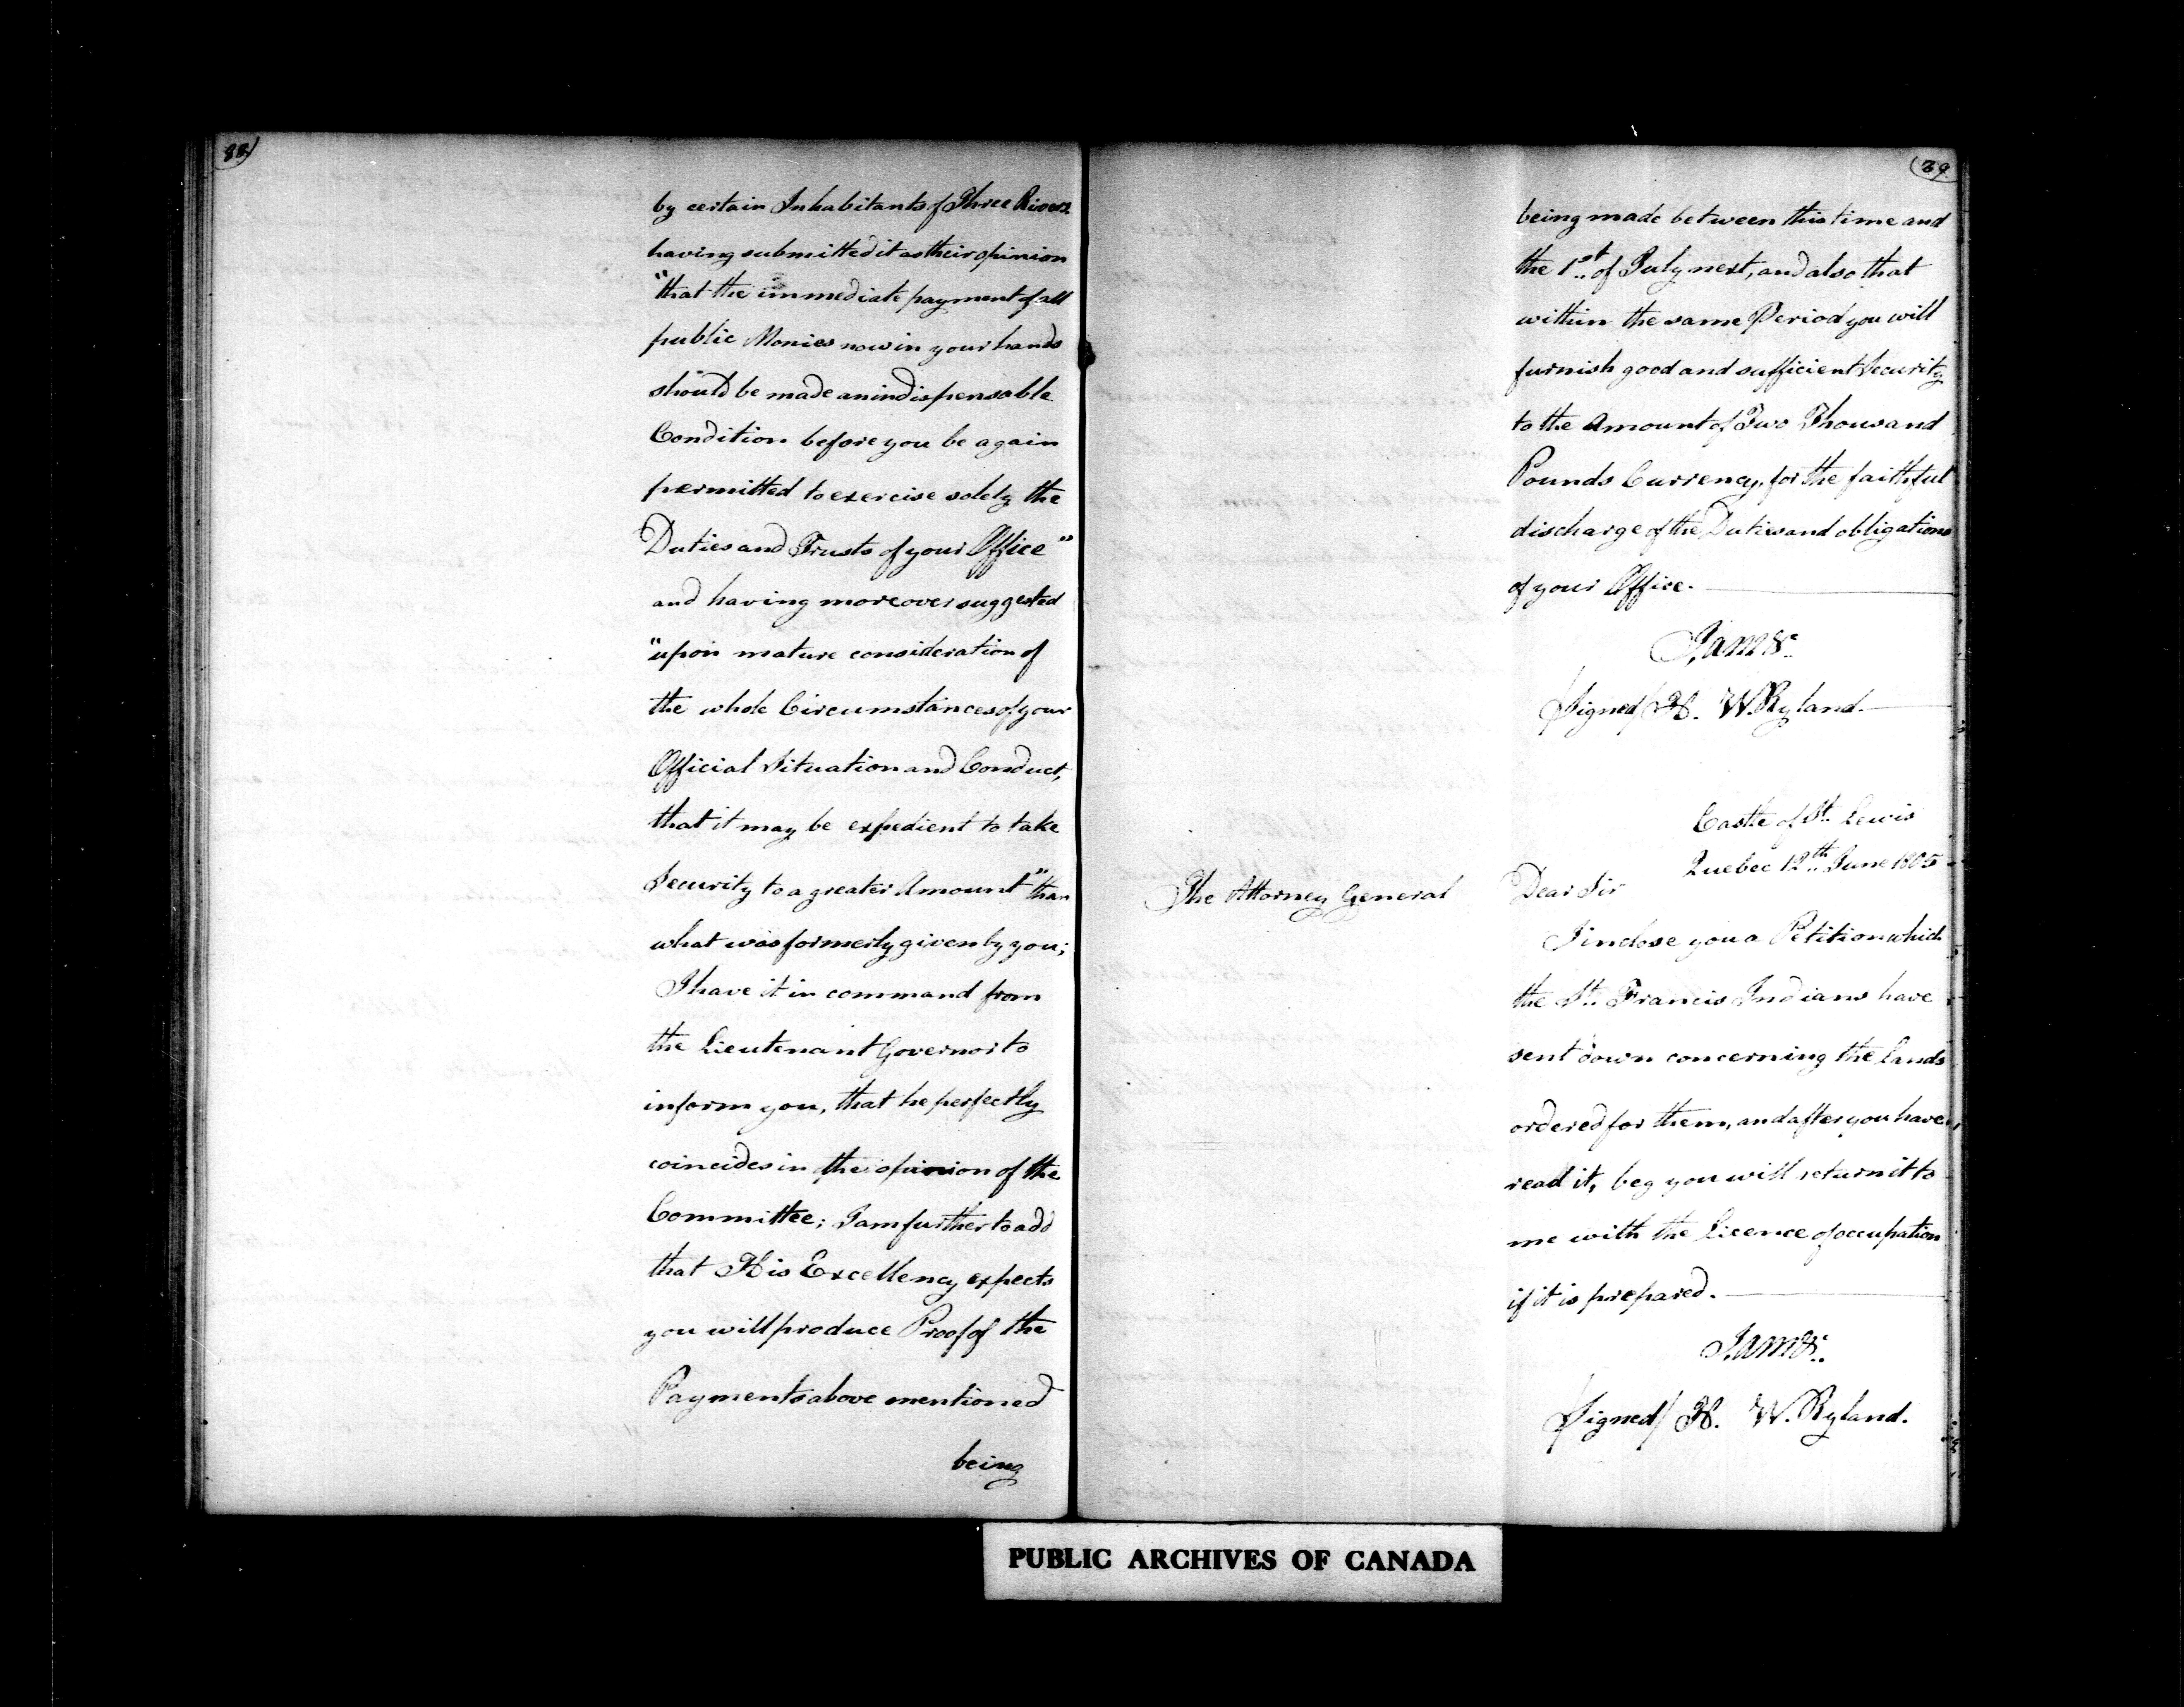 88
by certain Inhabitants of Three Rivers
having submitted it as their opinion
"that the immediate payment of all
public Monies now in your hands
should be made an indispensable
Condition before you be again
permitted to exercise solely the
Duties and Trusts of your Office"
and having moreover suggested
"upon mature consideration of
the whole Circumstances of your
Official Situation and Conduct,
that it may be expedient to take
Security to a greater Amount" than
what was formerly given by you;
I have it in command from
the Lieutenant Governor to
inform you, that he perfectly
coincides in the opinion of the
Committee; I am further to add
that His Excellency expects
you will produce Proof of the
Payments above mentioned
being
89
being made between this time and
the 1st of July next, and also that
within the same Period you will
furnish good and sufficient Security
to the Amount of Two Thousand
Pounds Currency, for the faithful
discharge of the Duties and obligations
of your Office.
I am &c.
Signed/ H. W. Ryland.
Castle of St. Lewis
Quebec 12th June 1805
The Attorney General
Dear Sir
I inclose you a Petition which
the St. Francis Indians have
sent down concerning the Lands
ordered for them, and after you have
read it, beg you will return it to
me with the Licence of occupation
if it is prepared.
I am &c.
Signed/ H. W. Ryland.
PUBLIC ARCHIVES OF CANADA